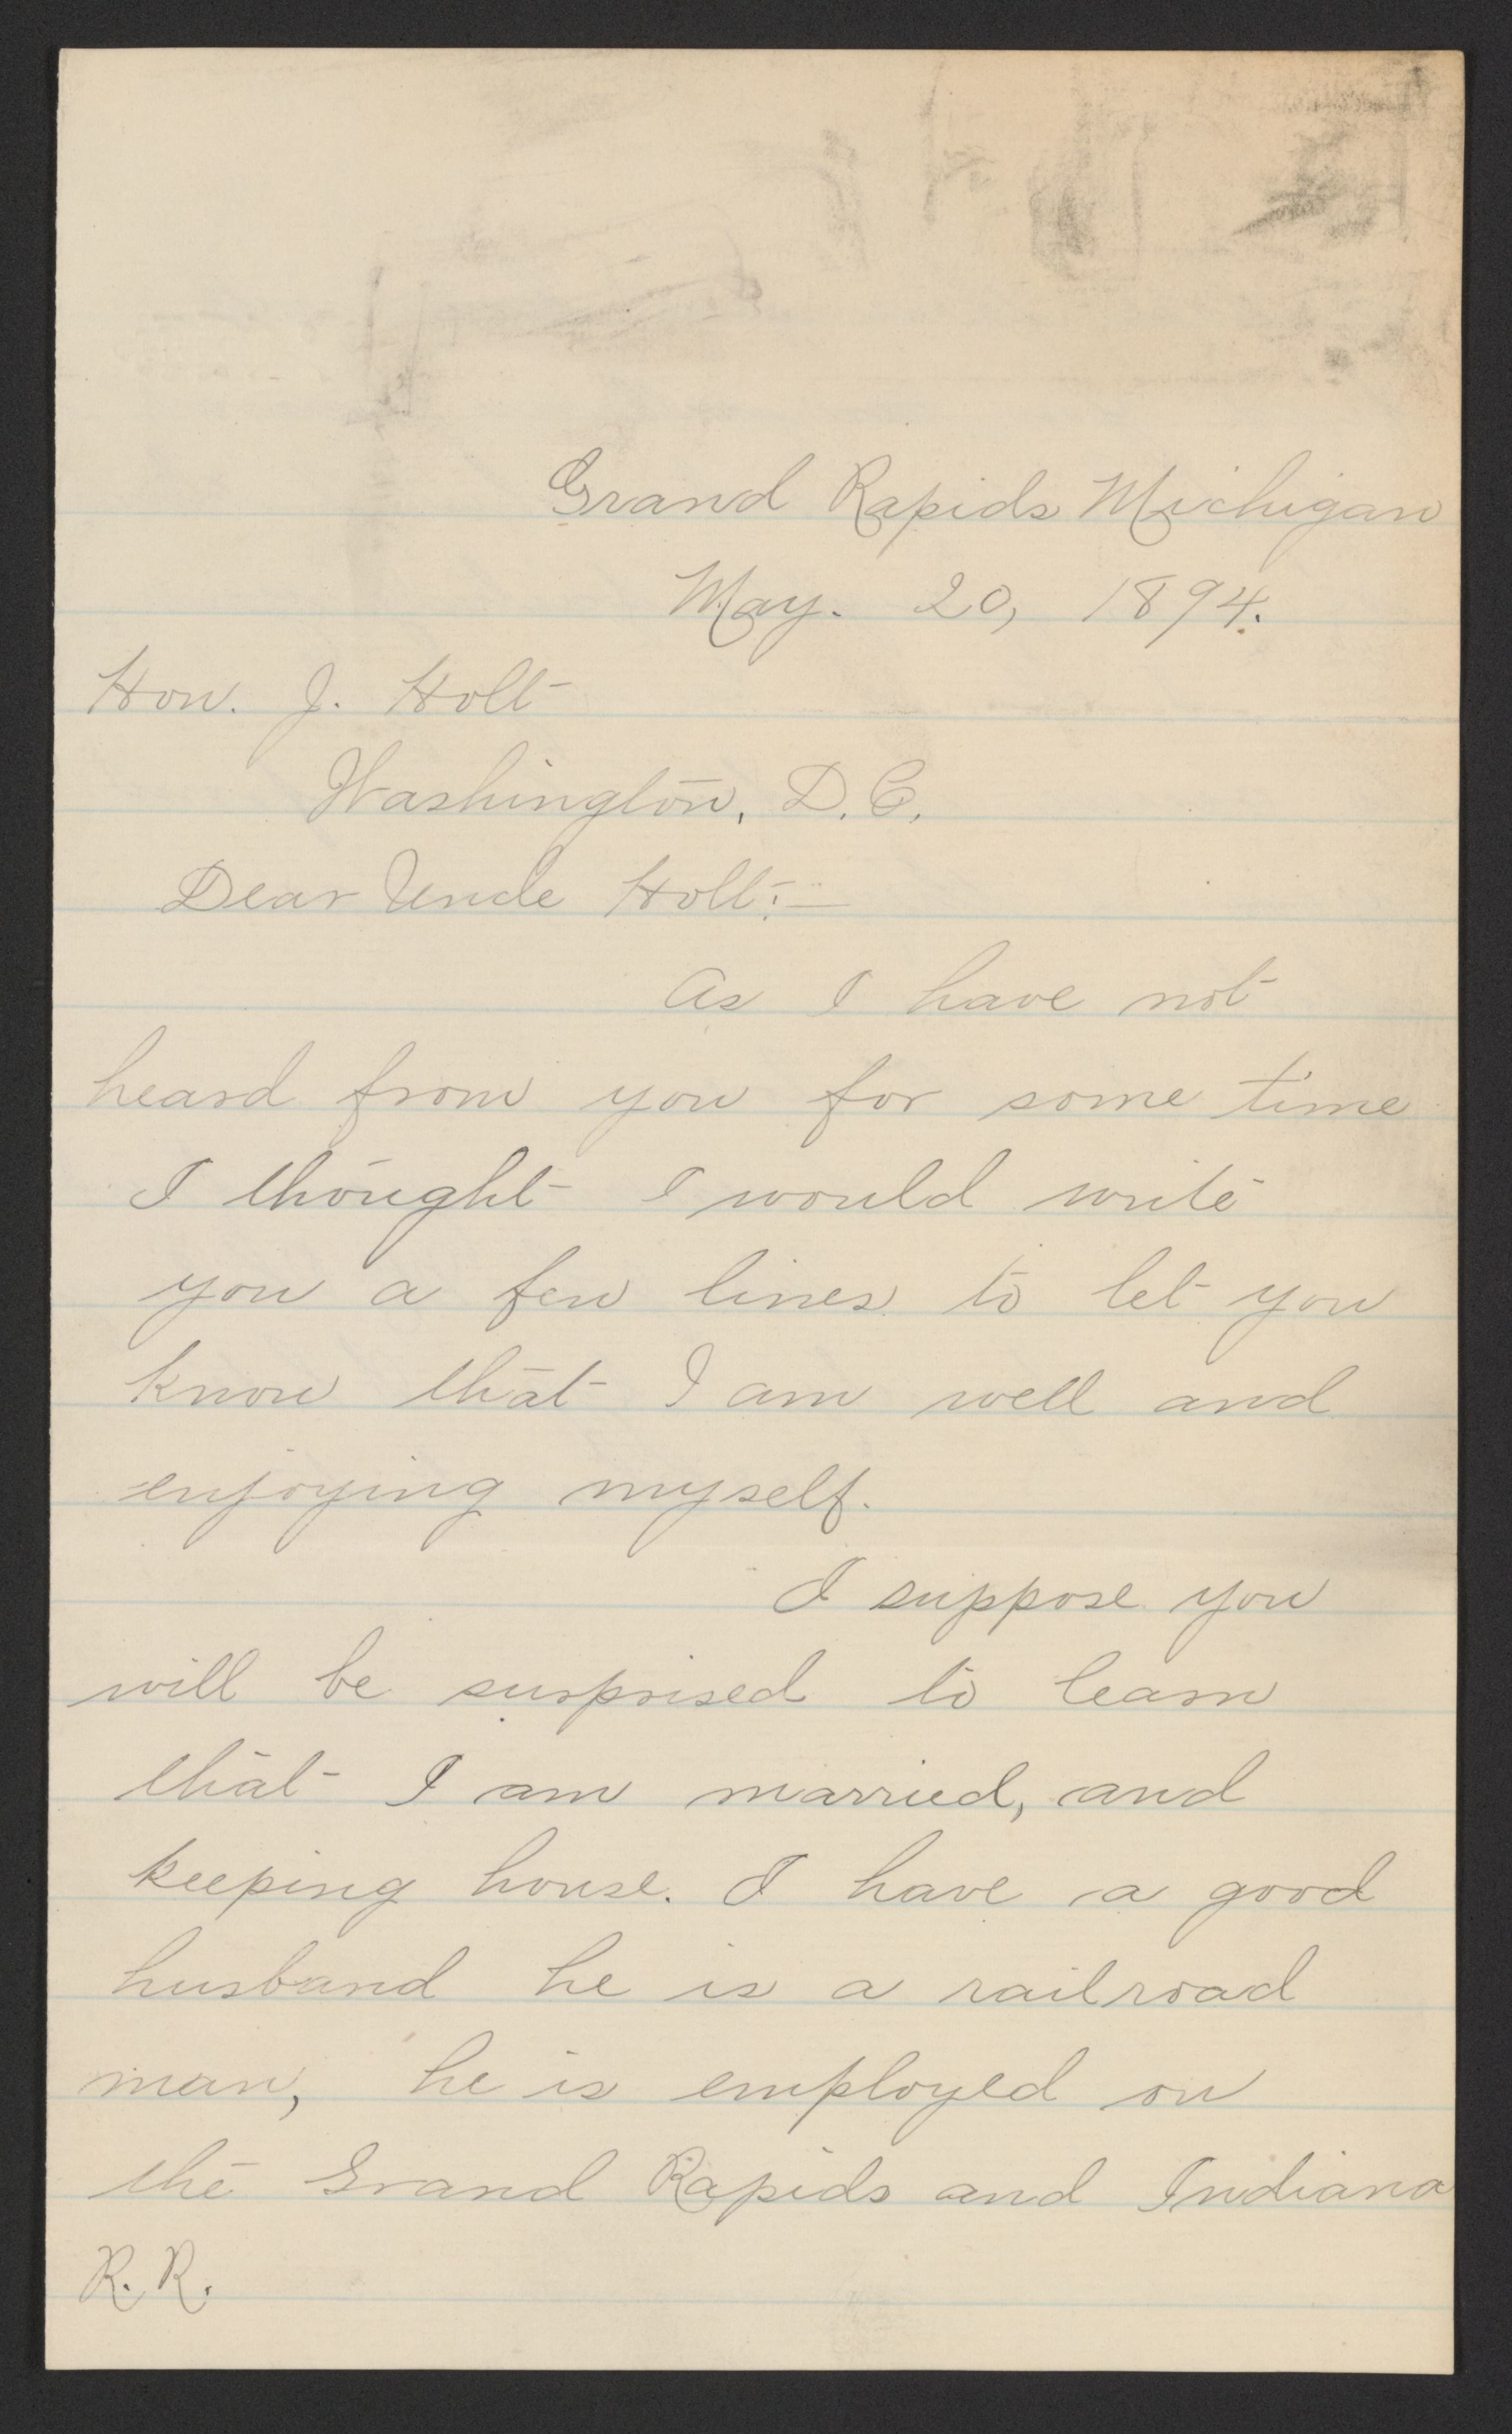 Grand Rapids Michigan
May. 20, 1894.
Hon. J. Holt
Washington, D.C.
Dear Uncle Holt:—
As I have not
heard from you for some time
I thought I would write
you a few lines to let you
know that I am well and
enjoying myself.
I suppose you
will be surprised to learn
that I am married, and
keeping house. I have a good
husband he is a railroad
man, he is employed on
the Grand Rapids and Indiana
R. R.